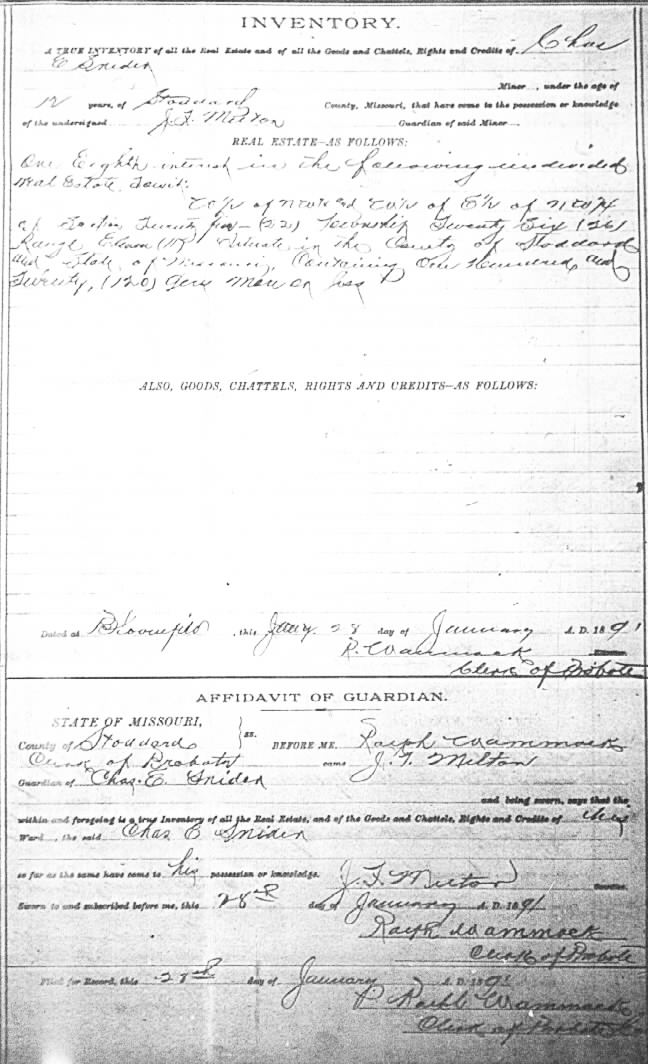 INVENTORY.
A TRUE INVENTORY of all the Real Estate and of all the Goods and Chattels, Rights and Credits of Chas
E Snider
Minor , under the age of
years, of Stoddard County, Missouri, that have come to the possession or knowledge
of the undersigned J. F. Milton Guardian of said Minor .
REAL ESTATE—AS FOLLOWS:
One Eighth interest in the following undivided
real Estate Towit:
of
of Section Twenty Township Twenty Six (26)
Range Eleven (11) Situate in the County of Stoddard
and State of Missouri, Containing One Hundred and
Twenty, (120) Acres More or less
ALSO, GOODS, CHATTELS, RIGHTS AND CREDITS—AS FOLLOWS:
Dated at Bloomfield , this Jany. 28 day of January A. D. 1891
R. Wammack
Clerk of Probate
AFFIDAVIT OF GUARDIAN.
STATE OF MISSOURI,
County of Stoddard } ss. BEFORE ME, Ralph Wammack
Clerk of Probate came J. F. Milton
Guardian of Chas. E. Snider
and being sworn, says that the
within and foregoing is a true Inventory of all the Real Estate, and of the Goods and Chattels, Rights and Credits of his
Ward , the said Chas E Snider
so far as the same have come to his possession or knowledge. J. F. Milton
Guardian.
Sworn to and subscribed before me, this 28th day of January A. D. 1891
Ralph Wammack
Clerk of Probate
Filed for Record, this 28th day of January A. D. 1891
Ralph Wammack
Clerk of Probate